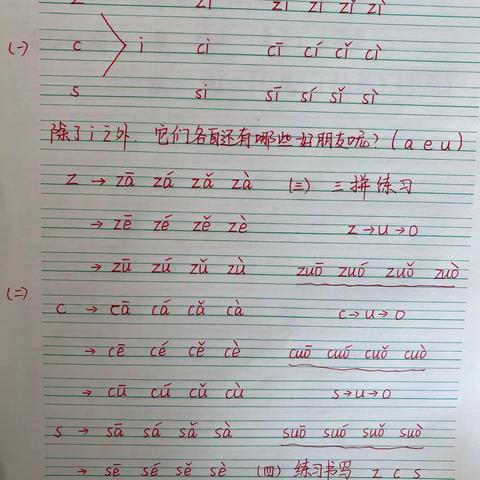 z zi zī zí zǐ zì
(一) c i ci cī cí cǐ cì
s si sī sí sǐ sì
除了i之外,它们各自还有哪些好朋友呢?(a e u)
z → zā zá zǎ zà (三) 三拼练习
→ zē zé zě zè z→u→o
→ zū zú zǔ zù zuō zuó zuǒ zuò
(二)
c → cā cá cǎ cà c→u→o
→ cē cé cě cè cuō cuó cuǒ cuò
→ cū cú cǔ cù s→u→o
s → sā sá sǎ sà suō suó suǒ suò
→ sē sé sě sè (四) 练习书写 z c s